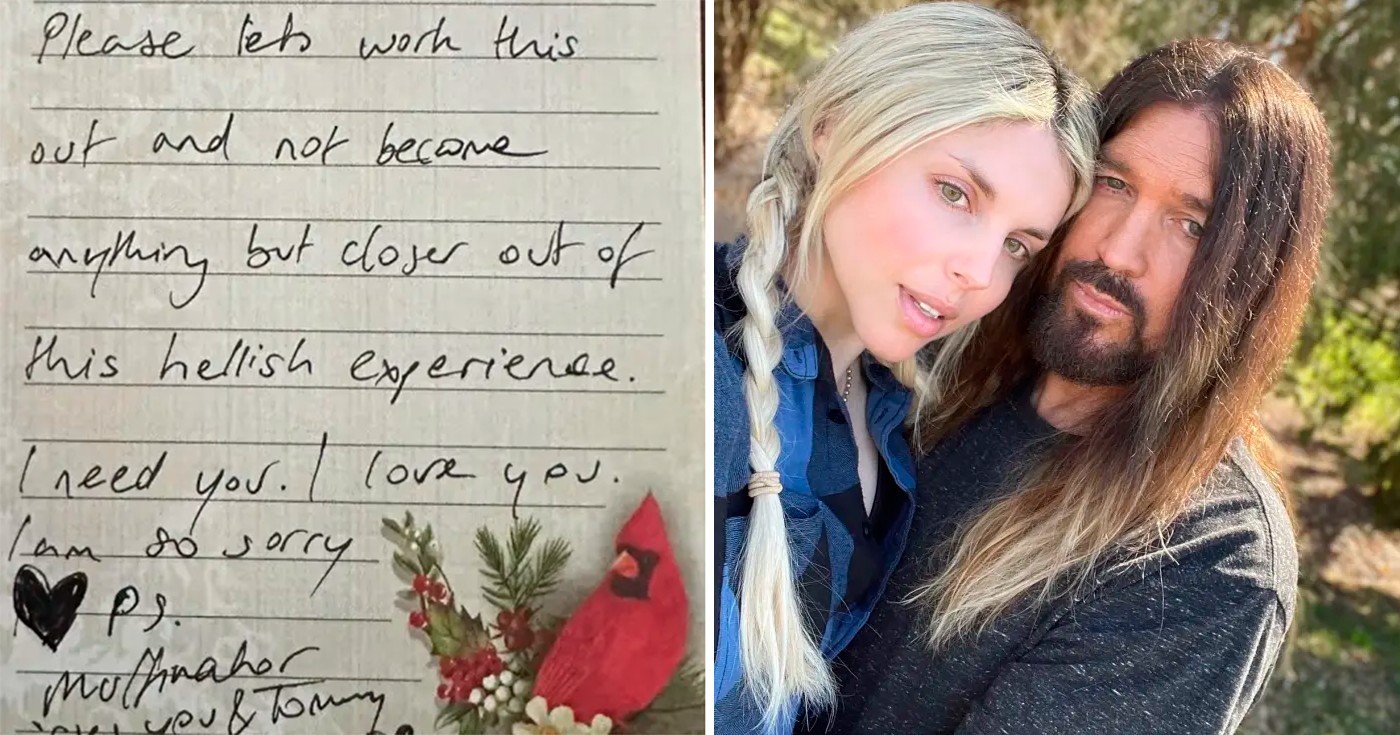 Please lets work this
out and not become
anything but closer out of
this hellish experience.
I need you. I love you.
I am so sorry
Ps.
you & Tommy